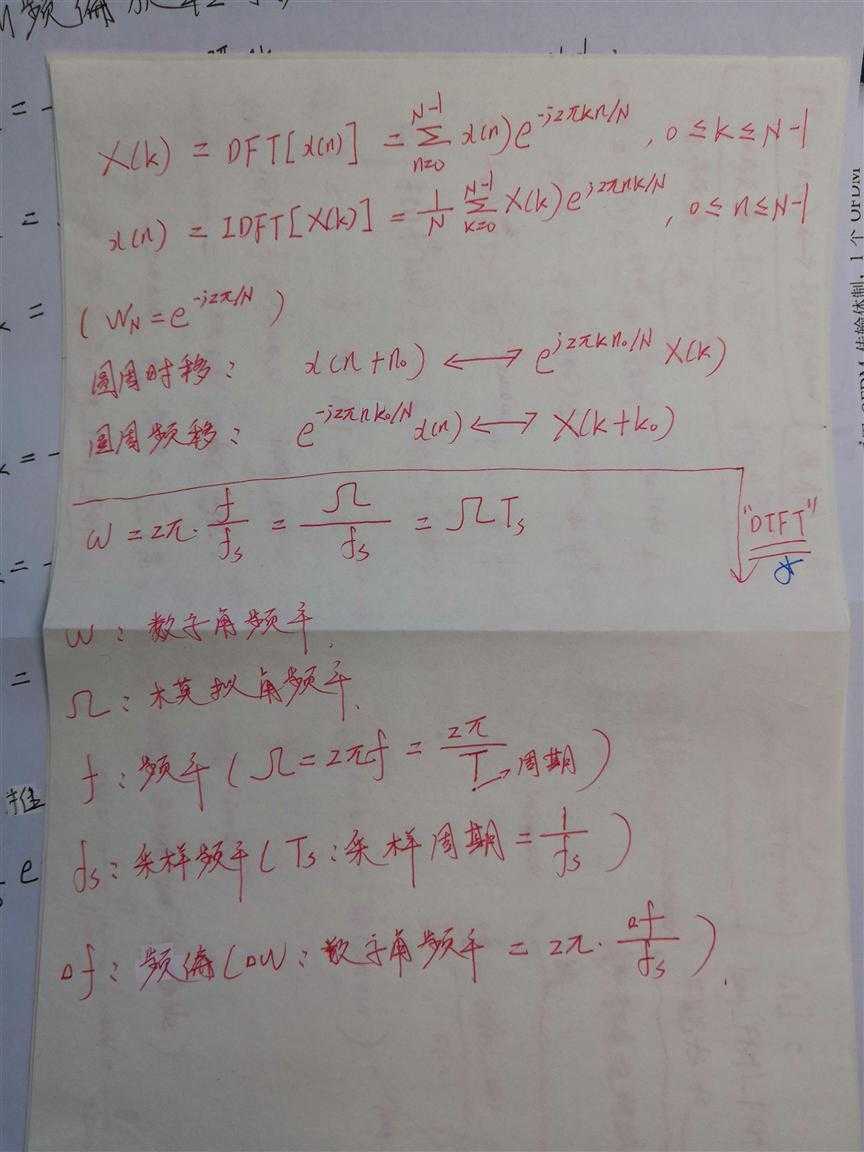 X(k) = DFT[x(n)] = \sum_{n=0}^{N-1} x(n) e^{-j2πkn/N} , 0 ≤ k ≤ N-1
x(n) = IDFT[X(k)] = \frac{1}{N} \sum_{k=0}^{N-1} X(k) e^{j2πnk/N} , 0 ≤ n ≤ N-1
( W_N = e^{-j2π/N} )
圆周时移: x(n+n_0) ⟷ e^{j2πkn_0/N} X(k)
圆周频移: e^{-j2πnk_0/N} x(n) ⟷ X(k+k_0)
ω = 2π·\frac{f}{f_s} = \frac{Ω}{f_s} = Ω T_s
"DTFT"
ω: 数字角频率.
Ω: 模拟角频率.
f: 频率 ( Ω = 2πf = \frac{2π}{T} → 周期 )
f_s: 采样频率 ( T_s: 采样周期 = \frac{1}{f_s} )
Δf: 频偏 ( Δω: 数字角频率 = 2π·\frac{Δf}{f_s} ).
推
e
1 个 OFDM